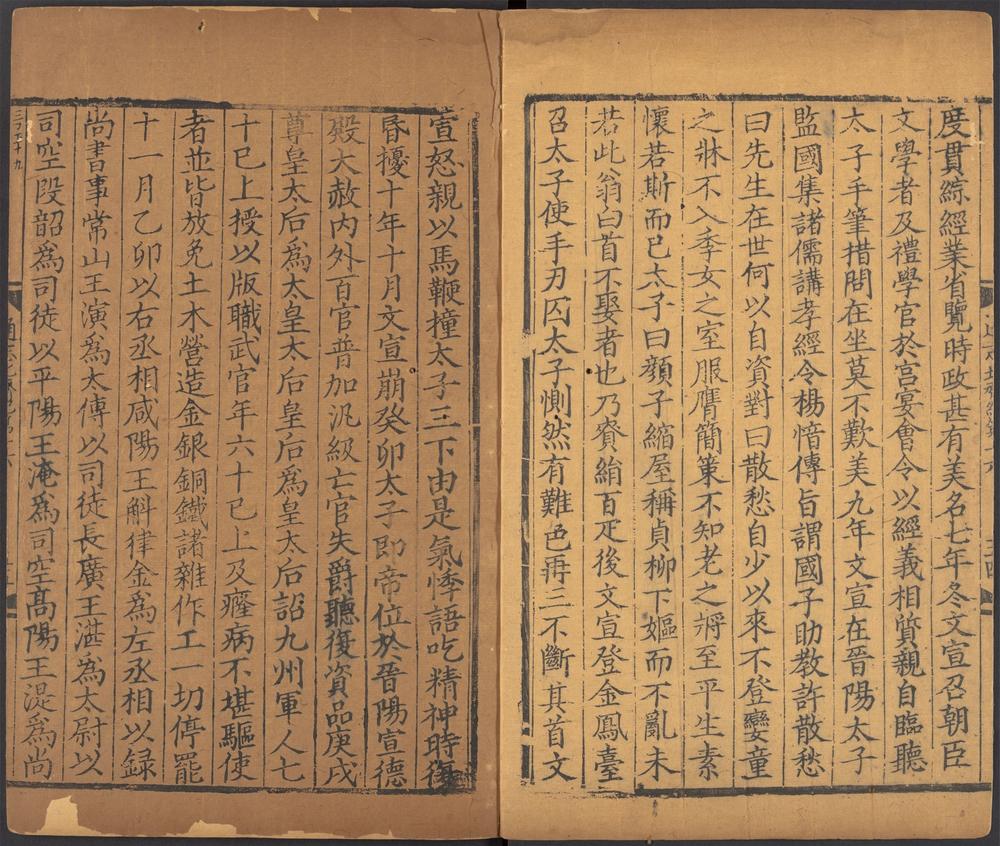 度貫綜經業省覽時政甚有美名七年冬文宣召朝臣
文學者及禮學官於宮宴會令以經義相質親自臨聽
太子手筆措問在坐莫不歎美九年文宣在晉陽太子
監國集諸儒講孝經令楊愔傳旨謂國子助教許散愁
曰先生在世何以自資對曰散愁自少以來不登孌童
之牀不入季女之室服膺簡策不知老之將至平生素
懷若斯而已太子曰顔子縮屋稱貞柳下嫗而不亂未
若此翁白首不娶者也乃賚絹百疋後文宣登金鳳臺
召太子使手刃囚太子惻然有難色再三不斷其首文
宣怒親以馬鞭撞太子三下由是氣悸語吃精神時復
昏擾十年十月文宣崩癸卯太子即帝位於晉陽宣德
殿大赦内外百官普加汎級亡官失爵聽復資品庚戌
尊皇太后爲太皇太后皇后爲皇太后詔九州軍人七
十已上授以版職武官年六十已上及癃病不堪驅使
者並皆放免土木營造金銀銅鐵諸雜作工一切停罷
十一月乙卯以右丞相咸陽王斛律金爲左丞相以録
尚書事常山王演爲太傅以司徒長廣王湛爲太尉以
司空段韶爲司徒以平陽王淹爲司空高陽王湜爲尚